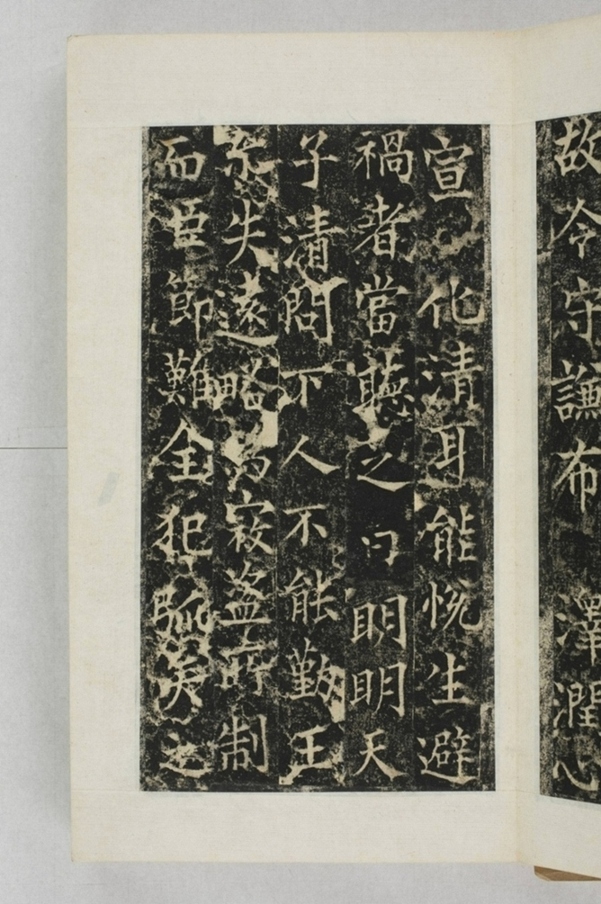 故今守謙布澤潤心
宣化清耳能悅生避
禍者當聽之曰明明天
子清問下人不能勤王
示失遠略為寇盜所制
而臣節難全犯孤矣之